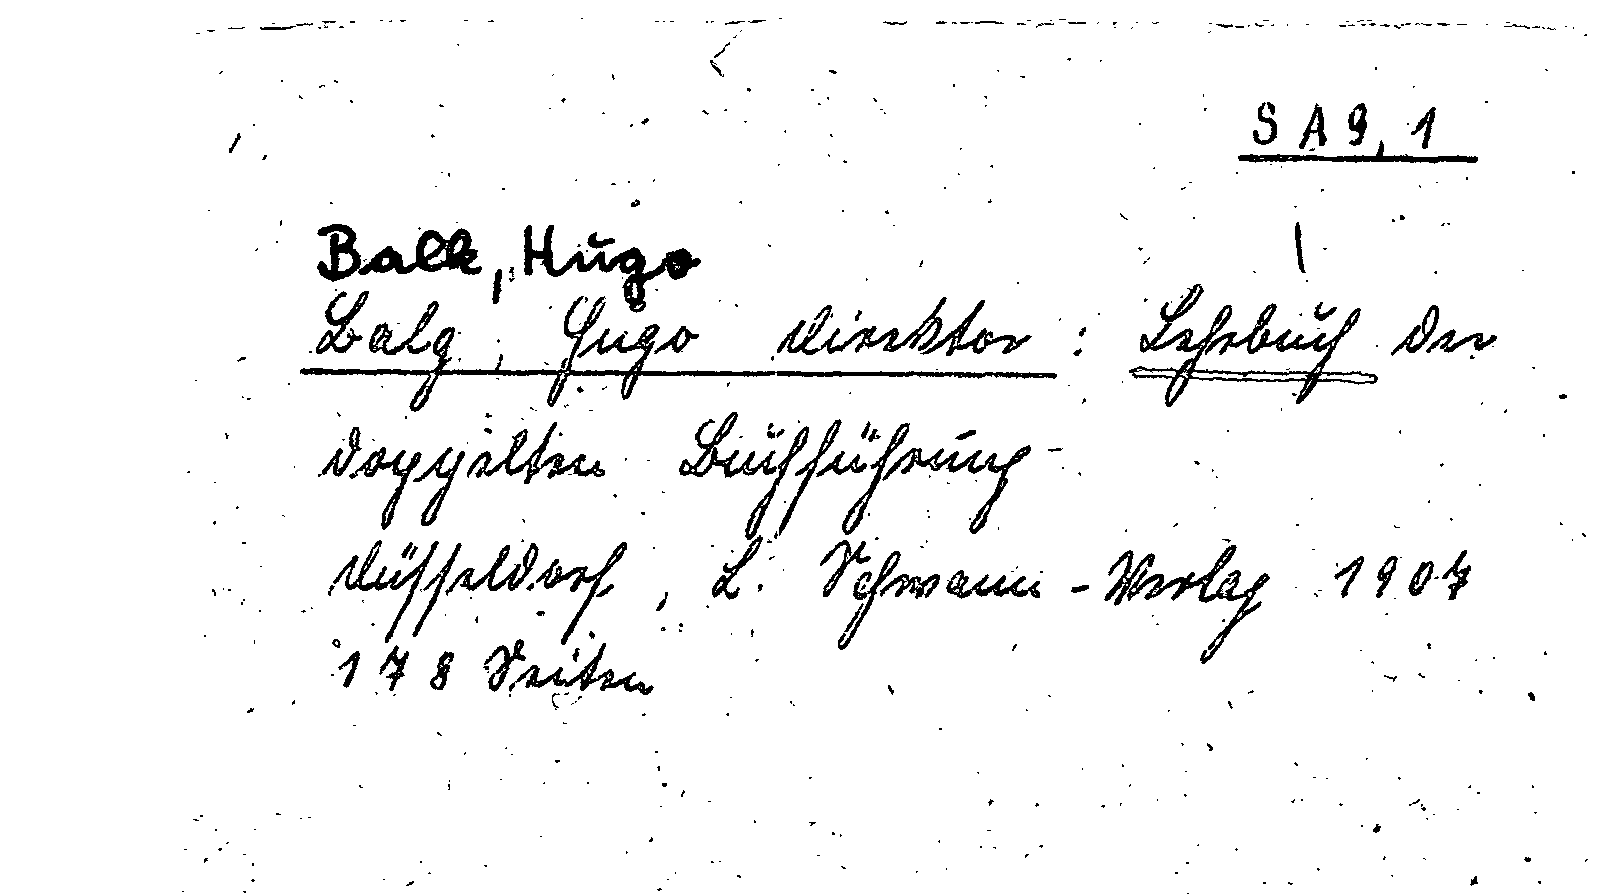 SA 9, 1
Balk, Hugo
Balg, Hugo Direktor: Lehrbuch der
doppelten Buchführung
Düsseldorf, L. Schwann-Verlag 1907
178 Seiten